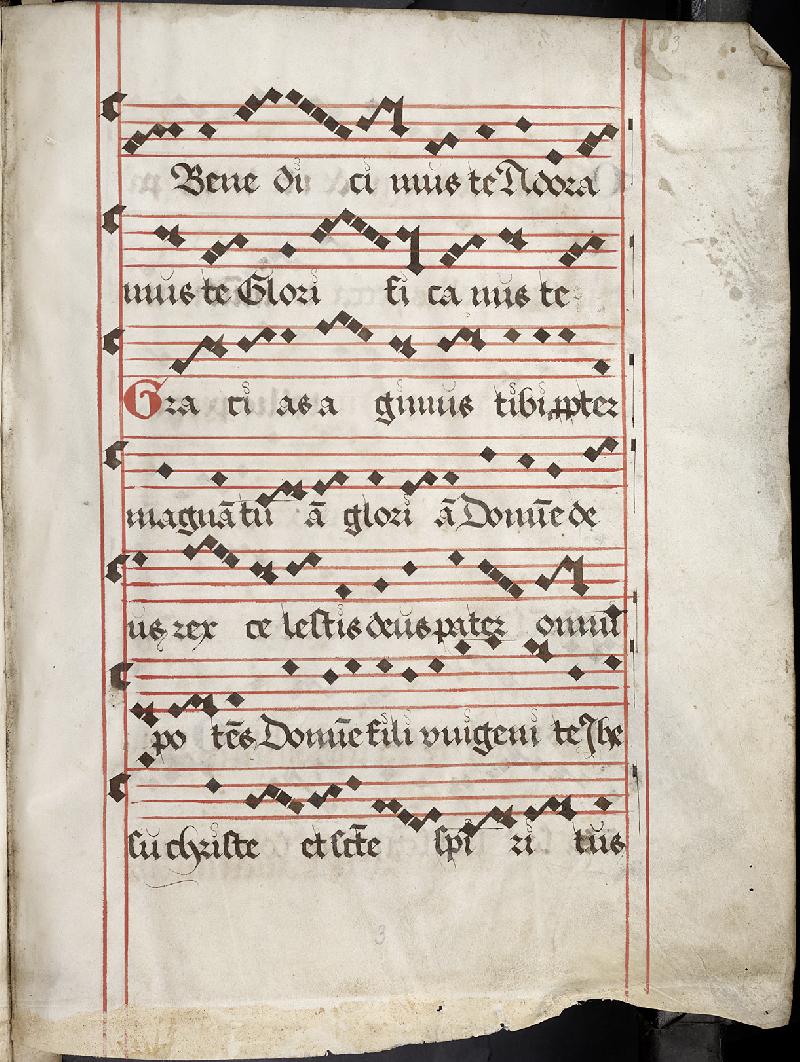 Bene di ci mus te Adora
mus te Glori fi ca mus te
Gra ci as a gimus tibi ꝓpter
magnā tu ā glori ā Domīe de
us rex ce lestis deus pater omnī
po tēs Domīe fili vnigeni te Jhe
su christe et scīe spi ri tus
3